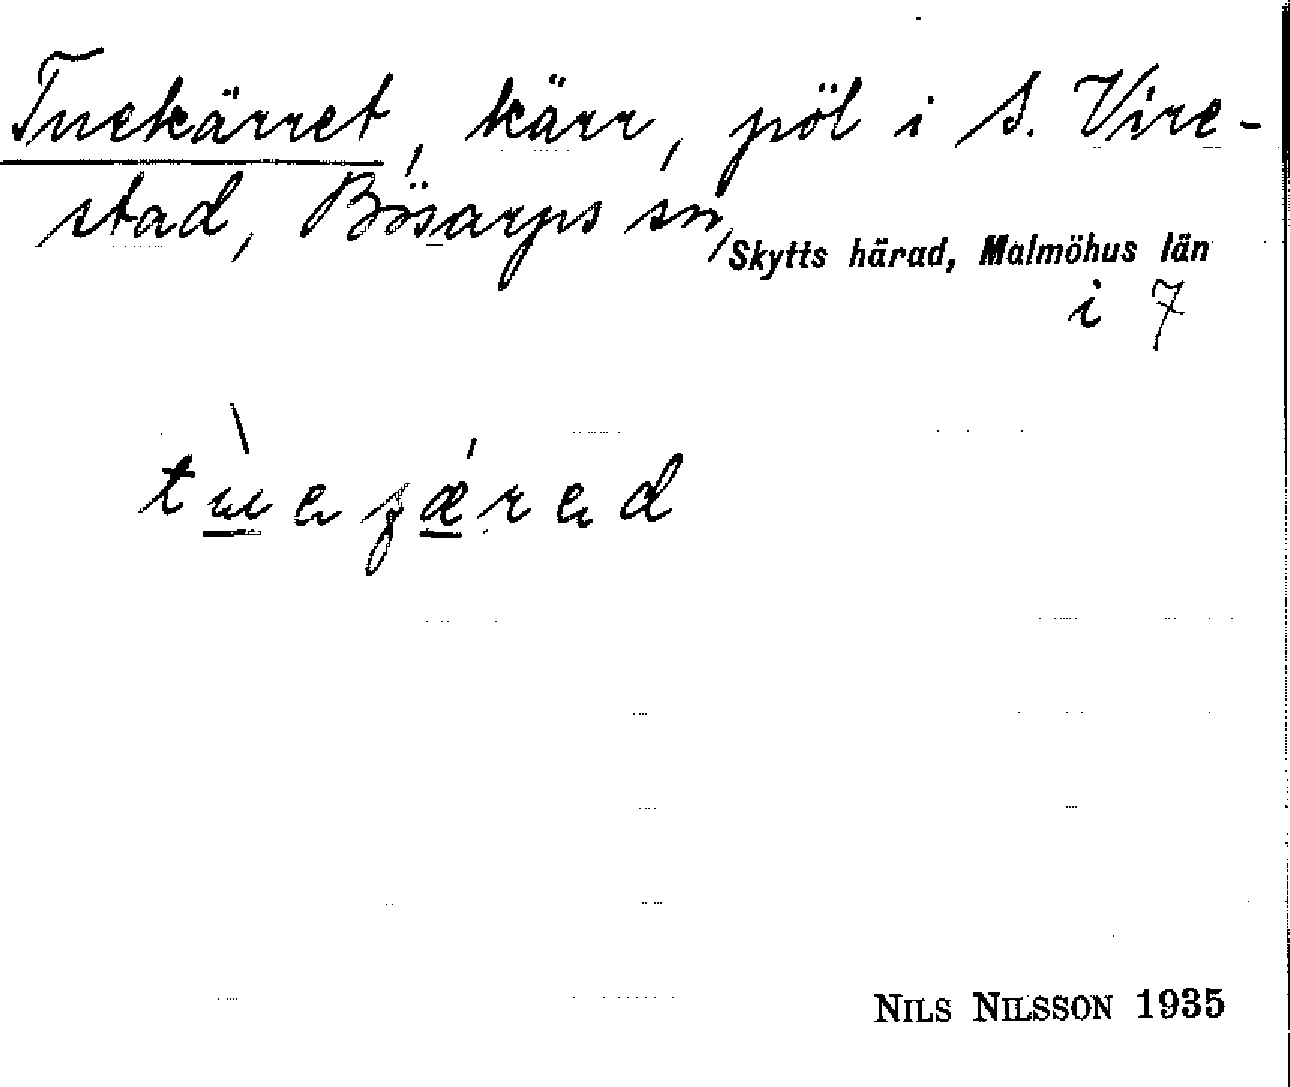 Tuekärret, kärr, pöl i S. Vire-
stad, Bösarps sn, Skytts härad, Malmöhus län
i 7
tueʒæred
NILS NILSSON 1935